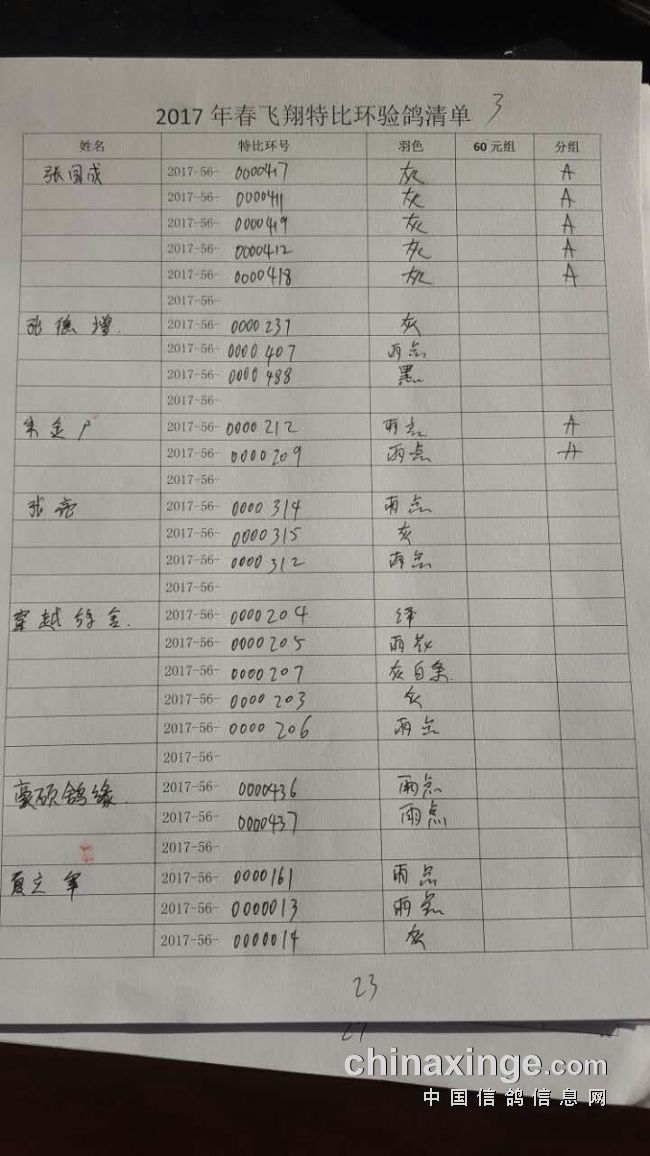 2017 年春飞翔特比环验鸽清单 3
姓名 特比环号 羽色 60 元组 分组
张国成 2017-56- 0000417 灰 A
2017-56- 0000411 灰 A
2017-56- 0000419 灰 A
2017-56- 0000412 灰 A
2017-56- 0000418 灰 A
2017-56-
张德增. 2017-56- 0000237 灰
2017-56- 0000407 雨点
2017-56- 0000488 黑
2017-56-
朱金广 2017-56- 0000212 雨点 A
2017-56- 0000209 雨点 A
2017-56-
张亮 2017-56- 0000314 雨点
2017-56- 0000315 灰
2017-56- 0000312 雨点
2017-56-
穿越 2017-56- 0000204 绛
2017-56- 0000205 雨花
2017-56- 0000207 灰白条.
2017-56- 0000203 灰
2017-56- 0000206 雨点
2017-56-
豪硕鸽缘. 2017-56- 0000436 雨点
2017-56- 0000437 雨点
2017-56-
夏立军 2017-56- 0000161 雨点
2017-56- 0000013 雨点
2017-56- 0000014 灰
23
chinaxinge.com
中国信鸽信息网